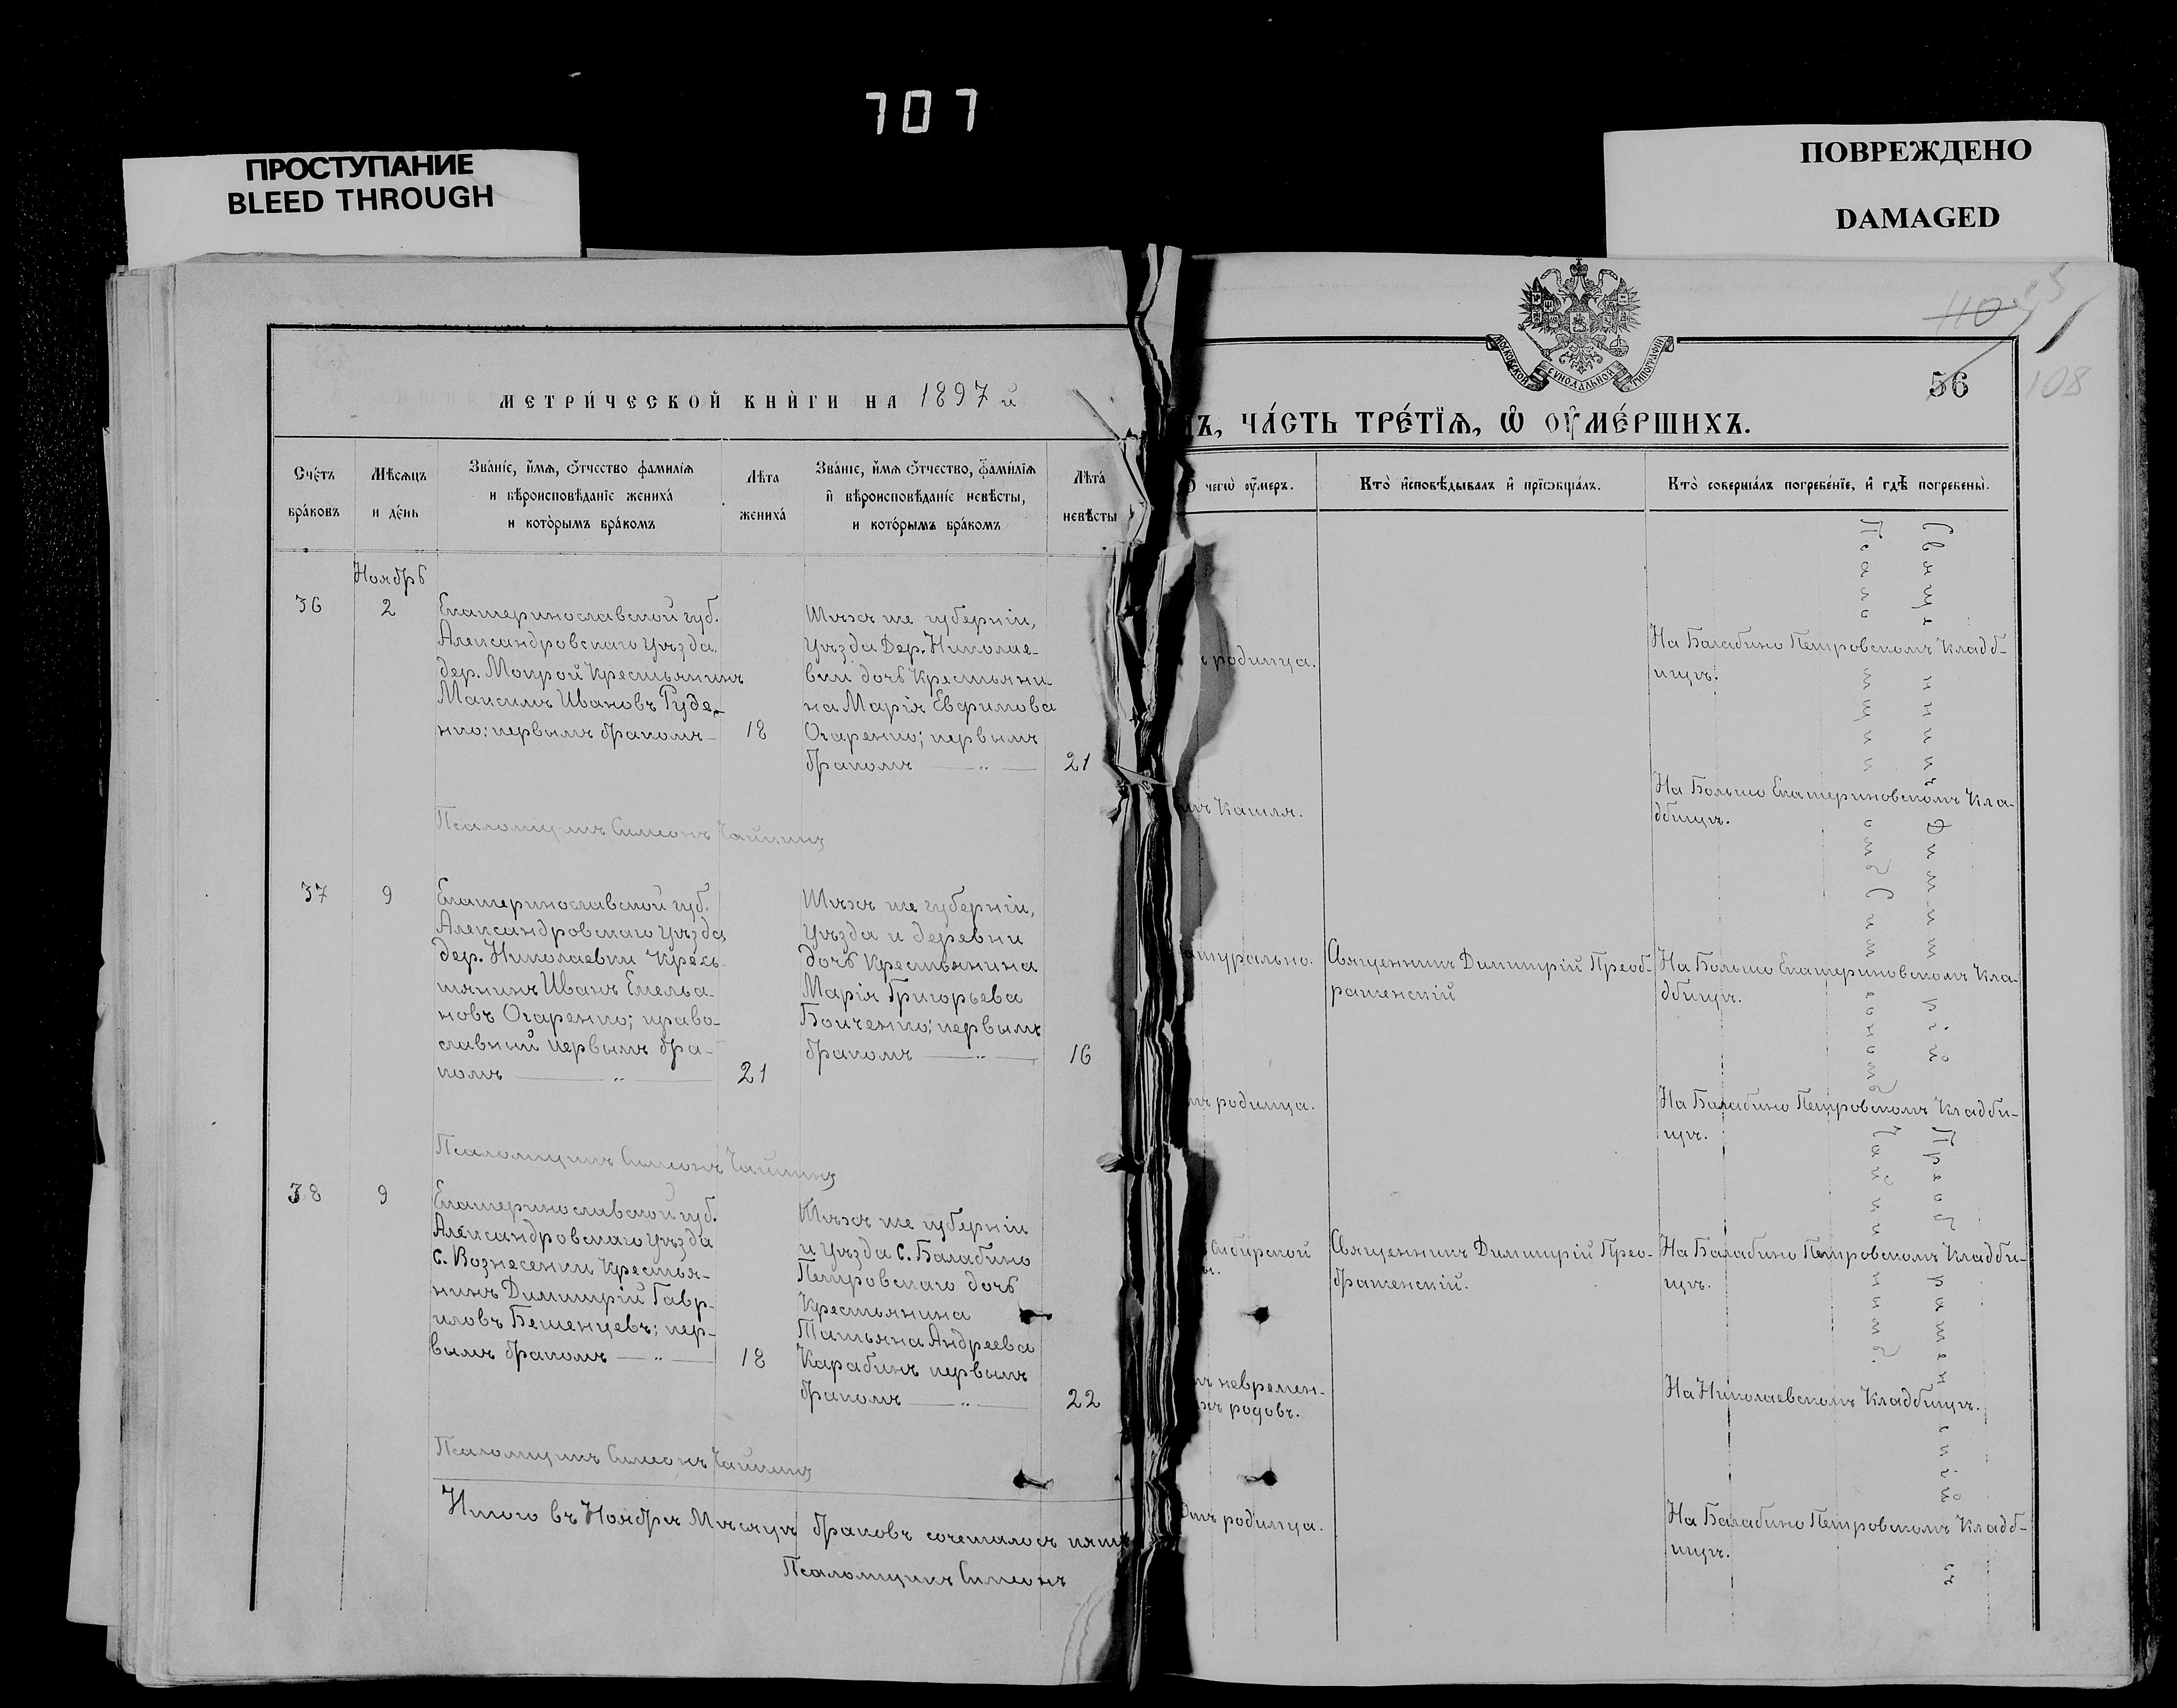 707
ПРОСТУПАНИЕ
BLEED THROUGH
ПОВРЕЖДЕНО
DAMAGED
МЕТРИ́ЧЕСКОЙ КНИ́ГИ НА 1897 й
Сче́тъ
бра́ковъ
Мѣ́сѧцъ
и де́нь
Зва́нїе, и́мѧ, ѻ́тчество фами́лїѧ
и вѣроисповѣ́данїе жениха́
и кото́рымъ бра́комъ
Лѣ́та
жениха́
Зва́нїе, и́мѧ ѻ́тчество, фами́лїѧ
и҆ вѣроисповѣ́данїе невѣ́сты,
и кото́рымъ бра́комъ
Лѣ́та
невѣ́сты
Ноябрь
36
2
Екатеринославской губ.
Александровскаго уѣзда
дер. Мокрой Крестьянинъ
Максимъ Ивановъ Руде-
нко: первымъ бракомъ
18
Тѣхъ же губерніи,
уѣзда Дер. Николае-
вки дочь Крестьяни-
на Марія Ефимова
Огаренко; первымъ
бракомъ — " —
21
Псаломщикъ Симеонъ Чайкинъ
37
9
Екатеринославской губ.
Александровскаго уѣзда
дер. Николаевки Кресь-
тянинъ Иванъ Емелья-
новъ Огаренко; право-
славный первымъ бра-
комъ — " —
21
Тѣхъ же губерніи,
уѣзда и деревни
дочь Крестьянина
Марія Григорьева
Бойченко; первымъ
бракомъ — " —
16
Псаломщикъ Симеонъ Чайкинъ
38
9
Екатеринославской губ.
Александровскаго уѣзда
с. Вознесенки Крестья-
нинъ Димитрій Гавр-
иловъ Бешенцевъ; пер-
вымъ бракомъ — " —
18
Тѣхъ же губерніи
и уѣзда с. Балабино
Петровскаго дочь
Крестьянина
Татьяна Андреева
Карабинъ первымъ
бракомъ — " —
22
Псаломщикъ Симеонъ Чайкинъ
Итого въ Ноябрѣ Мѣсяцѣ браковъ сочеталось пять
Псаломщикъ Симеонъ
МОСКОВСКОЙ СѴНОДАЛЬНОЙ ТИПОГРАФІИ
110
56
108
Ъ, ЧА́СТЬ ТРЕ́ТЇѦ, Ѡ҆ ОУ҆МЕ́РШИХЪ.
ѿ чегѡ̀ оу҆́меръ.
Кто̀ и҆сповѣ́дывалъ и҆ прїѡбща́лъ.
Кто̀ соверша́лъ погребе́нїе, и҆ гдѣ̀ погребены̀.
родимца.
На Балабино Петровскомъ Кладб-
ищѣ.
Кашля.
На Больше Екатериновскомъ Кла-
дбищѣ.
атурально.
Священникъ Димитрій Преоб-
раженскій
На Больше Екатериновскомъ Кла-
дбищѣ.
родимца.
На Балабино Петровскомъ Кладби-
щѣ.
Сибирской
Священникъ Димитрій Прео-
браженскій.
На Балабино Петровскомъ Кладби-
щѣ.
невремен-
родовъ.
На Николаевскомъ Кладбищѣ.
родимца.
На Балабино Петровскомъ Кладб-
ищѣ.
Священникъ Димитрій Преображенскій съ
Псаломщикомъ Симеономъ Чайкинымъ.